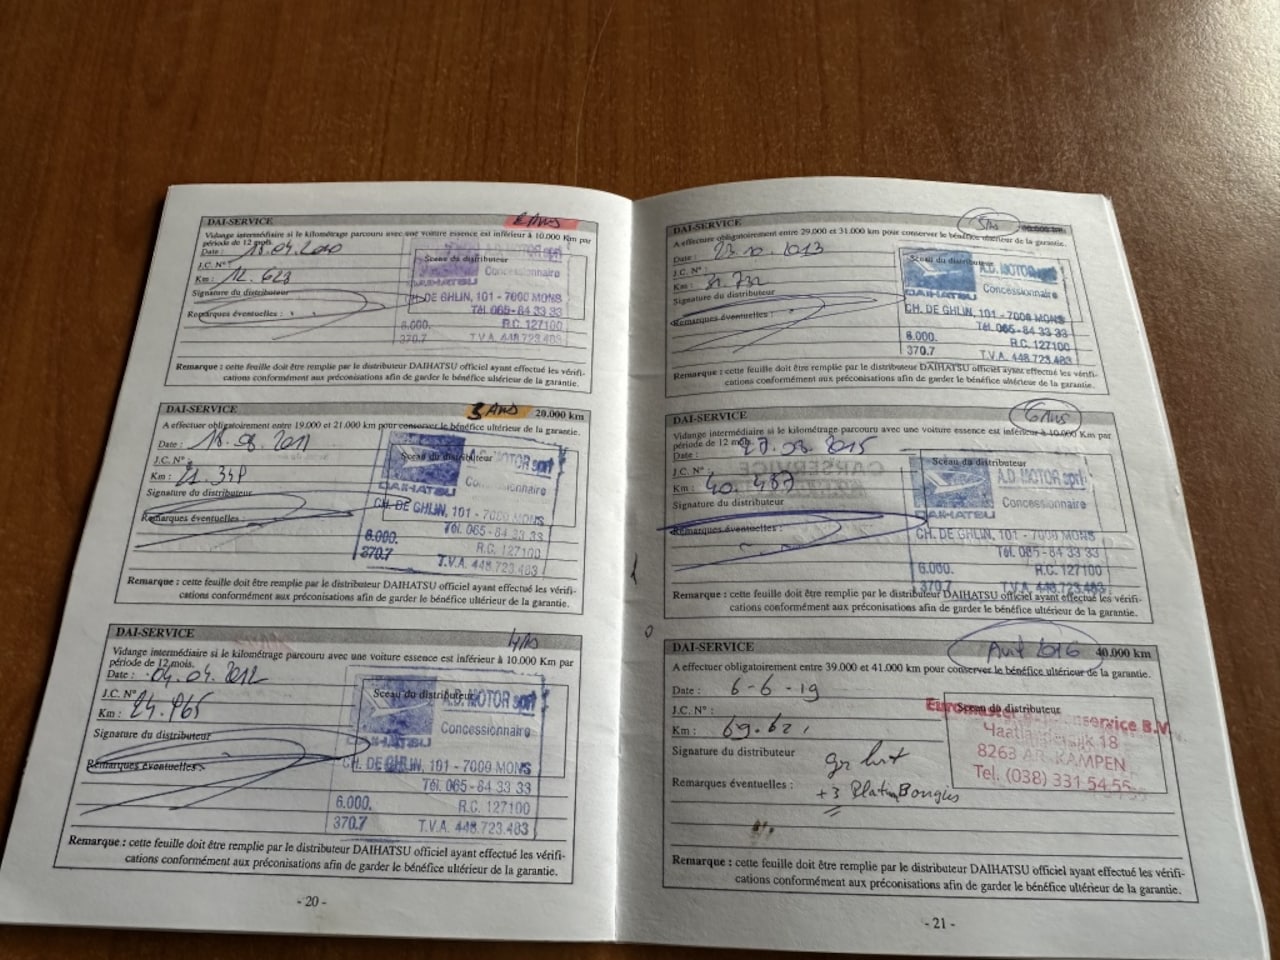 DAI-SERVICE 2 Ans
Vidange intermédiaire si le kilométrage parcouru avec une voiture essence est inférieur à 10.000 Km par
période de 12 mois.
Date : 18.04.2010
J.C. N°
Km : 12.623
Signature du distributeur
Remarques éventuelles :
Sceau du distributeur
Concessionnaire
CH. DE GHLIN, 101 - 7000 MONS
Tél. 065 - 84 33 33
6.000. R.C. 127100
370.7 T.V.A. 448.723.483
Remarque : cette feuille doit être remplie par le distributeur DAIHATSU officiel ayant effectué les vérifi-
cations conformément aux préconisations afin de garder le bénéfice ultérieur de la garantie.
DAI-SERVICE 3 Ans 20.000 km
A effectuer obligatoirement entre 19.000 et 21.000 km pour conserver le bénéfice ultérieur de la garantie.
Date :
J.C. N° :
Km : 21.348
Signature du distributeur
Remarques éventuelles :
Sceau du distributeur
A.D. MOTOR sprl
DAIHATSU Concessionnaire
CH. DE GHLIN, 101 - 7000 MONS
Tél. 065 - 84 33 33
6.000. R.C. 127100
370.7 T.V.A. 448.723.483
Remarque : cette feuille doit être remplie par le distributeur DAIHATSU officiel ayant effectué les vérifi-
cations conformément aux préconisations afin de garder le bénéfice ultérieur de la garantie.
DAI-SERVICE 4 Ans
Vidange intermédiaire si le kilométrage parcouru avec une voiture essence est inférieur à 10.000 Km par
période de 12 mois.
Date : 04.04.2012
J.C. N°
Km : 24.965
Signature du distributeur
Remarques éventuelles :
Sceau du distributeur
A.D. MOTOR sprl
DAIHATSU Concessionnaire
CH. DE GHLIN, 101 - 7000 MONS
Tél. 065 - 84 33 33
6.000. R.C. 127100
370.7 T.V.A. 448.723.483
Remarque : cette feuille doit être remplie par le distributeur DAIHATSU officiel ayant effectué les vérifi-
cations conformément aux préconisations afin de garder le bénéfice ultérieur de la garantie.
- 20 -
DAI-SERVICE 5 Ans
A effectuer obligatoirement entre 29.000 et 31.000 km pour conserver le bénéfice ultérieur de la garantie.
Date : 23.10.2013
J.C. N° :
Km : 31.732
Signature du distributeur
Remarques éventuelles :
Sceau du distributeur
A.D. MOTOR
DAIHATSU Concessionnaire
CH. DE GHLIN, 101 - 7000 MONS
Tél. 065 - 84 33 33
6.000. R.C. 127100
370.7 T.V.A. 448.723.483
Remarque : cette feuille doit être remplie par le distributeur DAIHATSU officiel ayant effectué les vérifi-
cations conformément aux préconisations afin de garder le bénéfice ultérieur de la garantie.
DAI-SERVICE 6 Ans
Vidange intermédiaire si le kilométrage parcouru avec une voiture essence est inférieur à 10.000 Km par
période de 12 mois.
Date : 27.03.2015
J.C. N° :
Km : 40.487
Signature du distributeur
Remarques éventuelles :
Sceau du distributeur
A.D. MOTOR sprl
DAIHATSU Concessionnaire
CH. DE GHLIN, 101 - 7000 MONS
Tél. 065 - 84 33 33
6.000. R.C. 127100
370.7 T.V.A. 448.723.483
Remarque : cette feuille doit être remplie par le distributeur DAIHATSU officiel ayant effectué les vérifi-
cations conformément aux préconisations afin de garder le bénéfice ultérieur de la garantie.
DAI-SERVICE Avril 2016 40.000 km
A effectuer obligatoirement entre 39.000 et 41.000 km pour conserver le bénéfice ultérieur de la garantie.
Date : 6-6-19
J.C. N° :
Km : 69.62
Signature du distributeur
gr brt
Remarques éventuelles : +3 Platina Bougies
Sceau du distributeur
Euromaster Bandenservice B.V.
Haatlanderdijk 18
8263 AR KAMPEN
Tel. (038) 331 54 55
Remarque : cette feuille doit être remplie par le distributeur DAIHATSU officiel ayant effectué les vérifi-
cations conformément aux préconisations afin de garder le bénéfice ultérieur de la garantie.
- 21 -